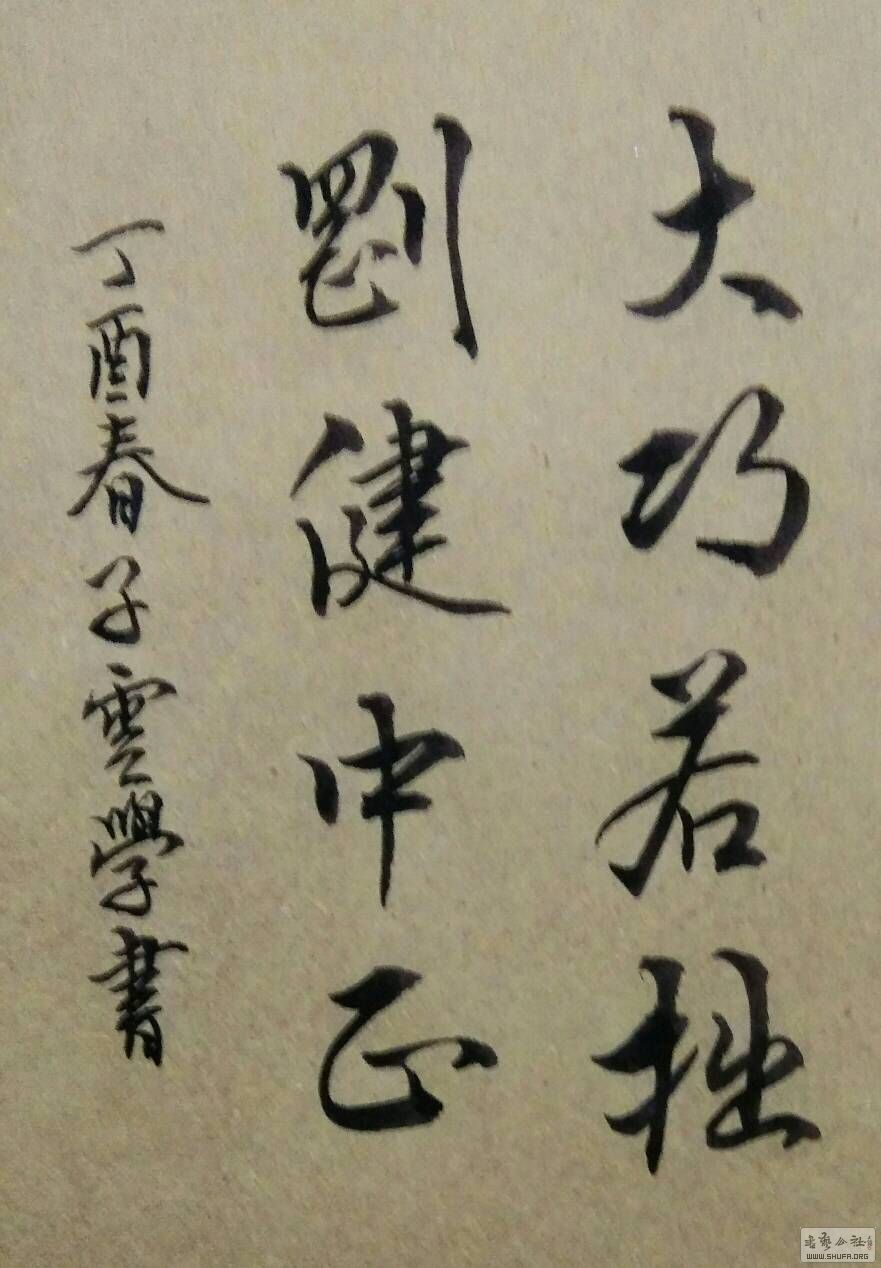 大巧若拙
剛健中正
丁酉春子雲學書
书艺公社
WWW.SHUFA.ORG